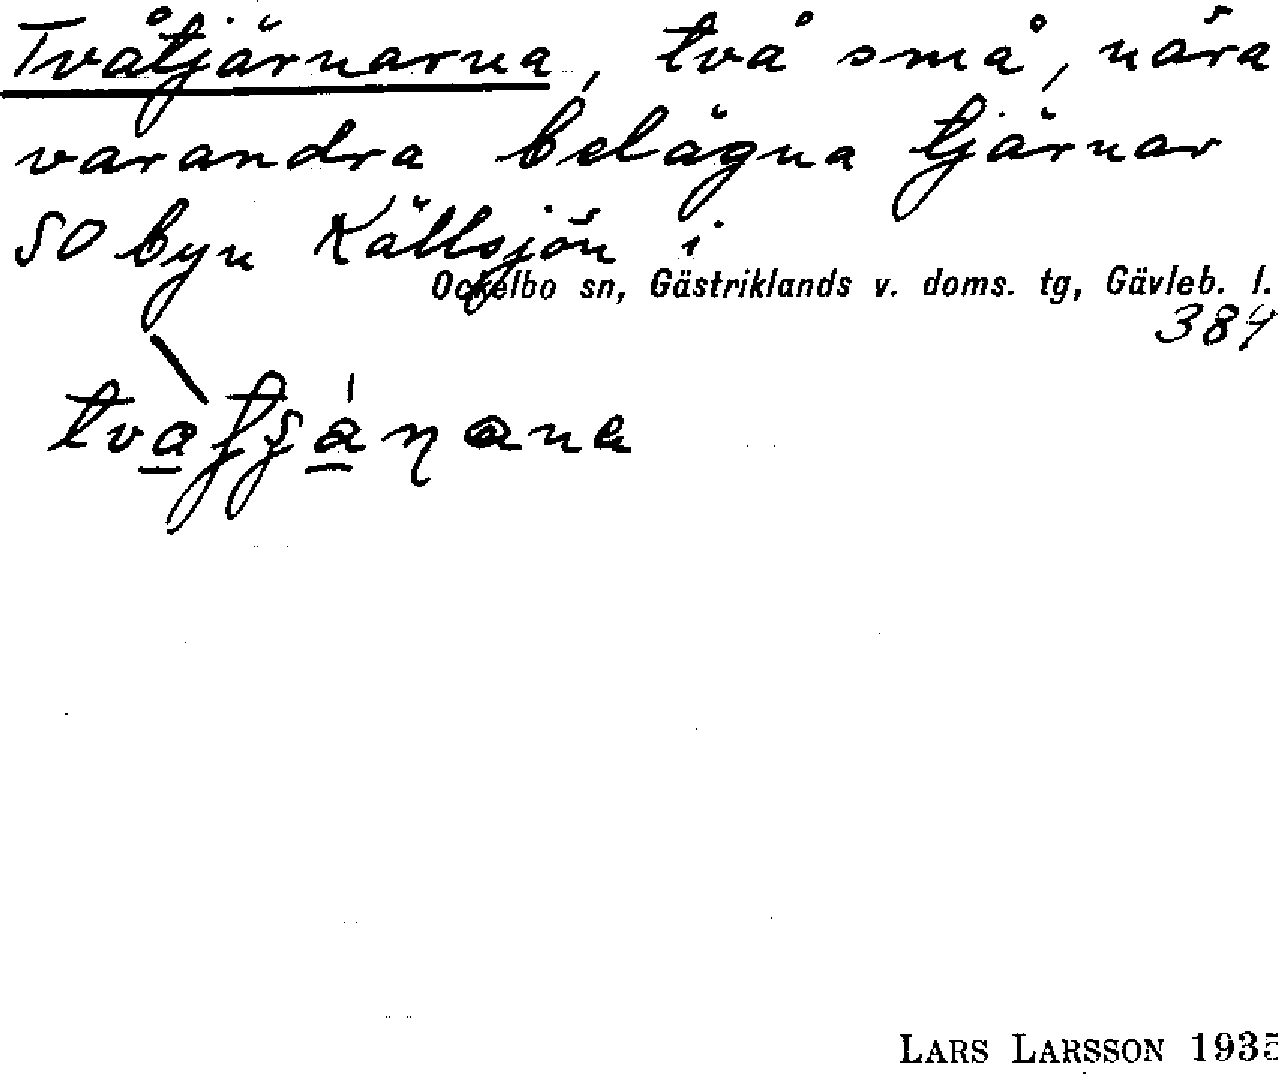 Tvåtjärnarna, två små, nära
varandra belägna tjärnar
SO byn Källsjön i
Ockelbo sn, Gästriklands v. doms. tg, Gävleb. l.
384
LARS LARSSON 1935